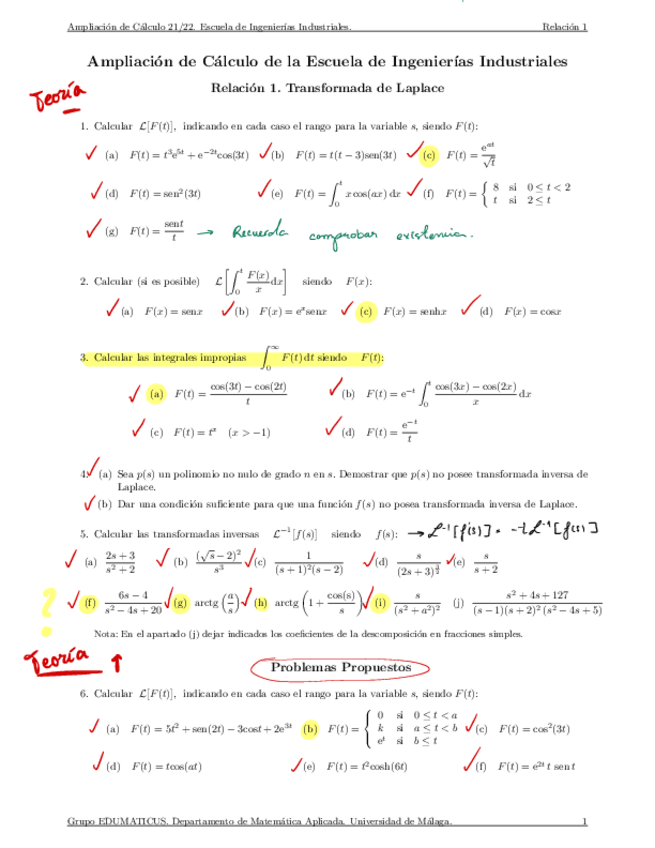 Ampliación de Cálculo 21/22. Escuela de Ingenierías Industriales. Relación 1
Ampliación de Cálculo de la Escuela de Ingenierías Industriales
Relación 1. Transformada de Laplace
Teoría
1. Calcular ℒ[F(t)], indicando en cada caso el rango para la variable s, siendo F(t):
(a) F(t) = t³e⁵ᵗ + e⁻²ᵗcos(3t) (b) F(t) = t(t − 3)sen(3t) (c) F(t) = eᵃᵗ/√t
(d) F(t) = sen²(3t) (e) F(t) = ∫₀ᵗ x cos(ax) dx (f) F(t) = { 8 si 0 ≤ t < 2
t si 2 ≤ t
(g) F(t) = sent/t → Recuerda comprobar existencia.
2. Calcular (si es posible) ℒ[∫₀ᵗ F(x)/x dx] siendo F(x):
(a) F(x) = senx (b) F(x) = eˣsenx (c) F(x) = senhx (d) F(x) = cosx
3. Calcular las integrales impropias ∫₀^∞ F(t) dt siendo F(t):
(a) F(t) = (cos(3t) − cos(2t))/t (b) F(t) = e⁻ᵗ ∫₀ᵗ (cos(3x) − cos(2x))/x dx
(c) F(t) = tˣ (x > −1) (d) F(t) = e⁻ᵗ/t
4. (a) Sea p(s) un polinomio no nulo de grado n en s. Demostrar que p(s) no posee transformada inversa de
Laplace.
(b) Dar una condición suficiente para que una función f(s) no posea transformada inversa de Laplace.
5. Calcular las transformadas inversas ℒ⁻¹[f(s)] siendo f(s): → ℒ⁻¹[f'(s)] = -t ℒ⁻¹[f(s)]
(a) (2s + 3)/(s² + 2) (b) (√s − 2)²/s³ (c) 1/((s + 1)²(s − 2)) (d) s/(2s + 3)^(3/2) (e) s/(s + 2)
? (f) (6s − 4)/(s² − 4s + 20) (g) arctg(a/s) (h) arctg(1 + cos(s)/s) (i) s/(s² + a²)² (j) (s² + 4s + 127)/((s − 1)(s + 2)²(s² − 4s + 5))
Nota: En el apartado (j) dejar indicados los coeficientes de la descomposición en fracciones simples.
Teoría ↑
Problemas Propuestos
6. Calcular ℒ[F(t)], indicando en cada caso el rango para la variable s, siendo F(t):
(a) F(t) = 5t² + sen(2t) − 3cost + 2e³ᵗ (b) F(t) = { 0 si 0 ≤ t < a
k si a ≤ t < b
eᵗ si b ≤ t
(c) F(t) = cos²(3t)
(d) F(t) = tcos(at) (e) F(t) = t²cosh(6t) (f) F(t) = e²ᵗ t sent
Grupo EDUMATICUS. Departamento de Matemática Aplicada. Universidad de Málaga. 1